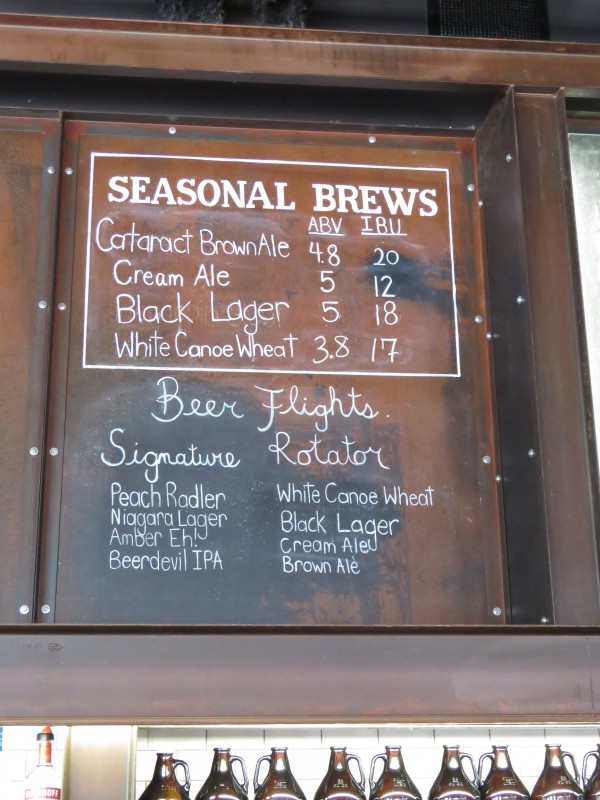 SEASONAL BREWS
ABV IBU
Cataract Brown Ale 4.8 20
Cream Ale 5 12
Black Lager 5 18
White Canoe Wheat 3.8 17
Beer Flights.
Signature Rotator
Peach Radler White Canoe Wheat
Niagara Lager Black Lager
Amber Eh! Cream Ale
Beerdevil IPA Brown Ale